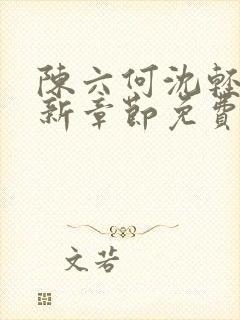 陳六何沈輕
新章節免費
文若